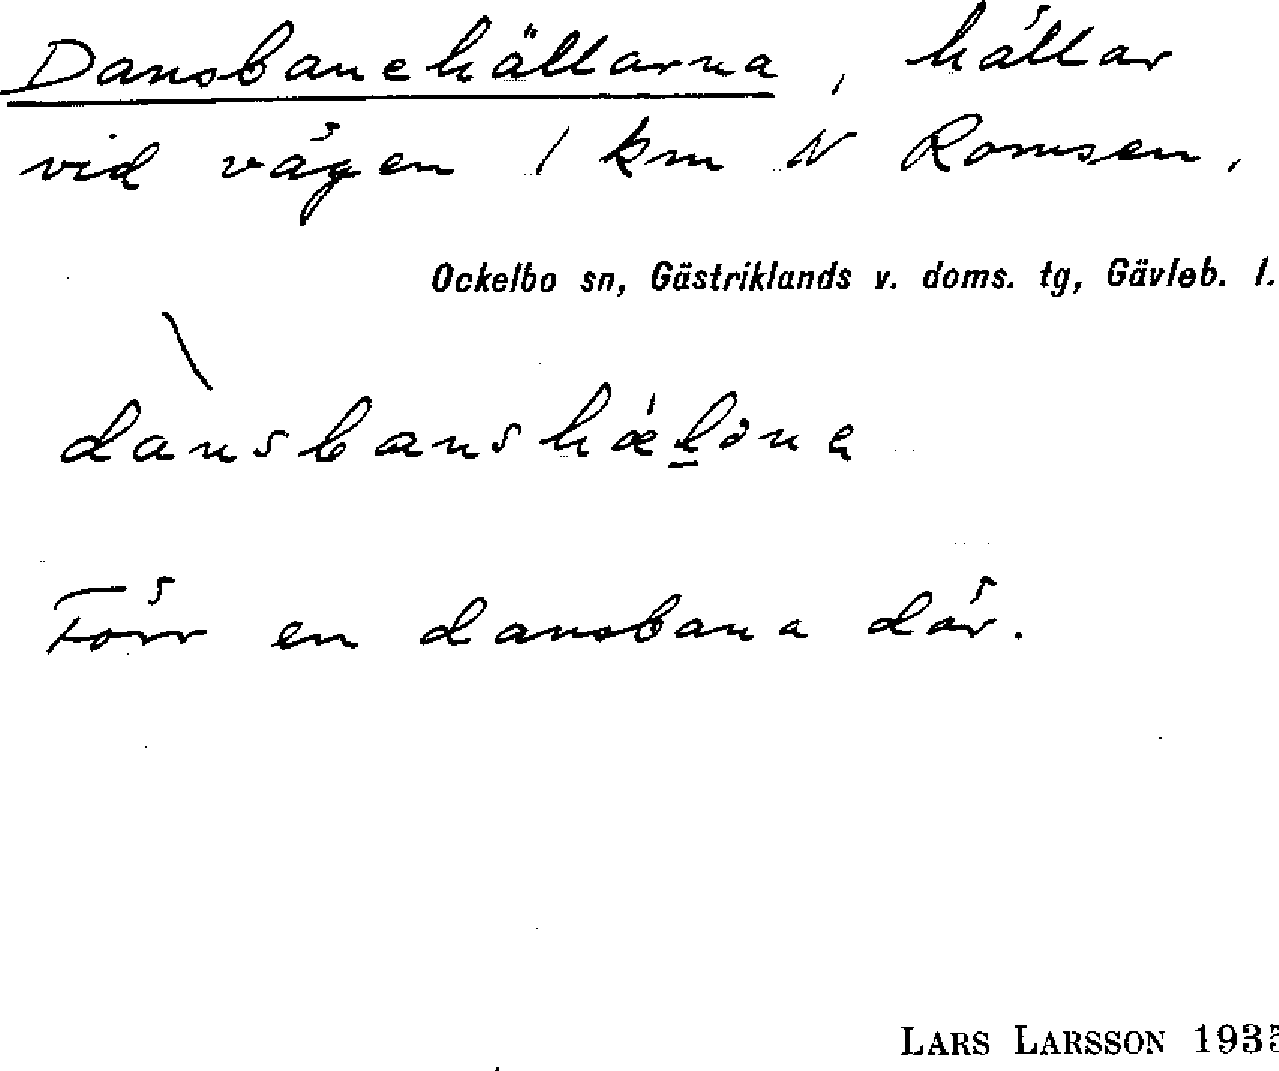 Dansbanehällarna, hällar
vid vägen 1 km N Romsen.
Ockelbo sn, Gästriklands v. doms. tg, Gävleb. l.
Förr en dansbana där.
LARS LARSSON